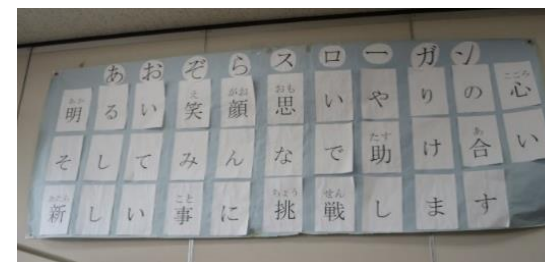 あおぞらスローガン
明るい笑顔思いやりの心
そしてみんなで助け合い
新しい事に挑戦します